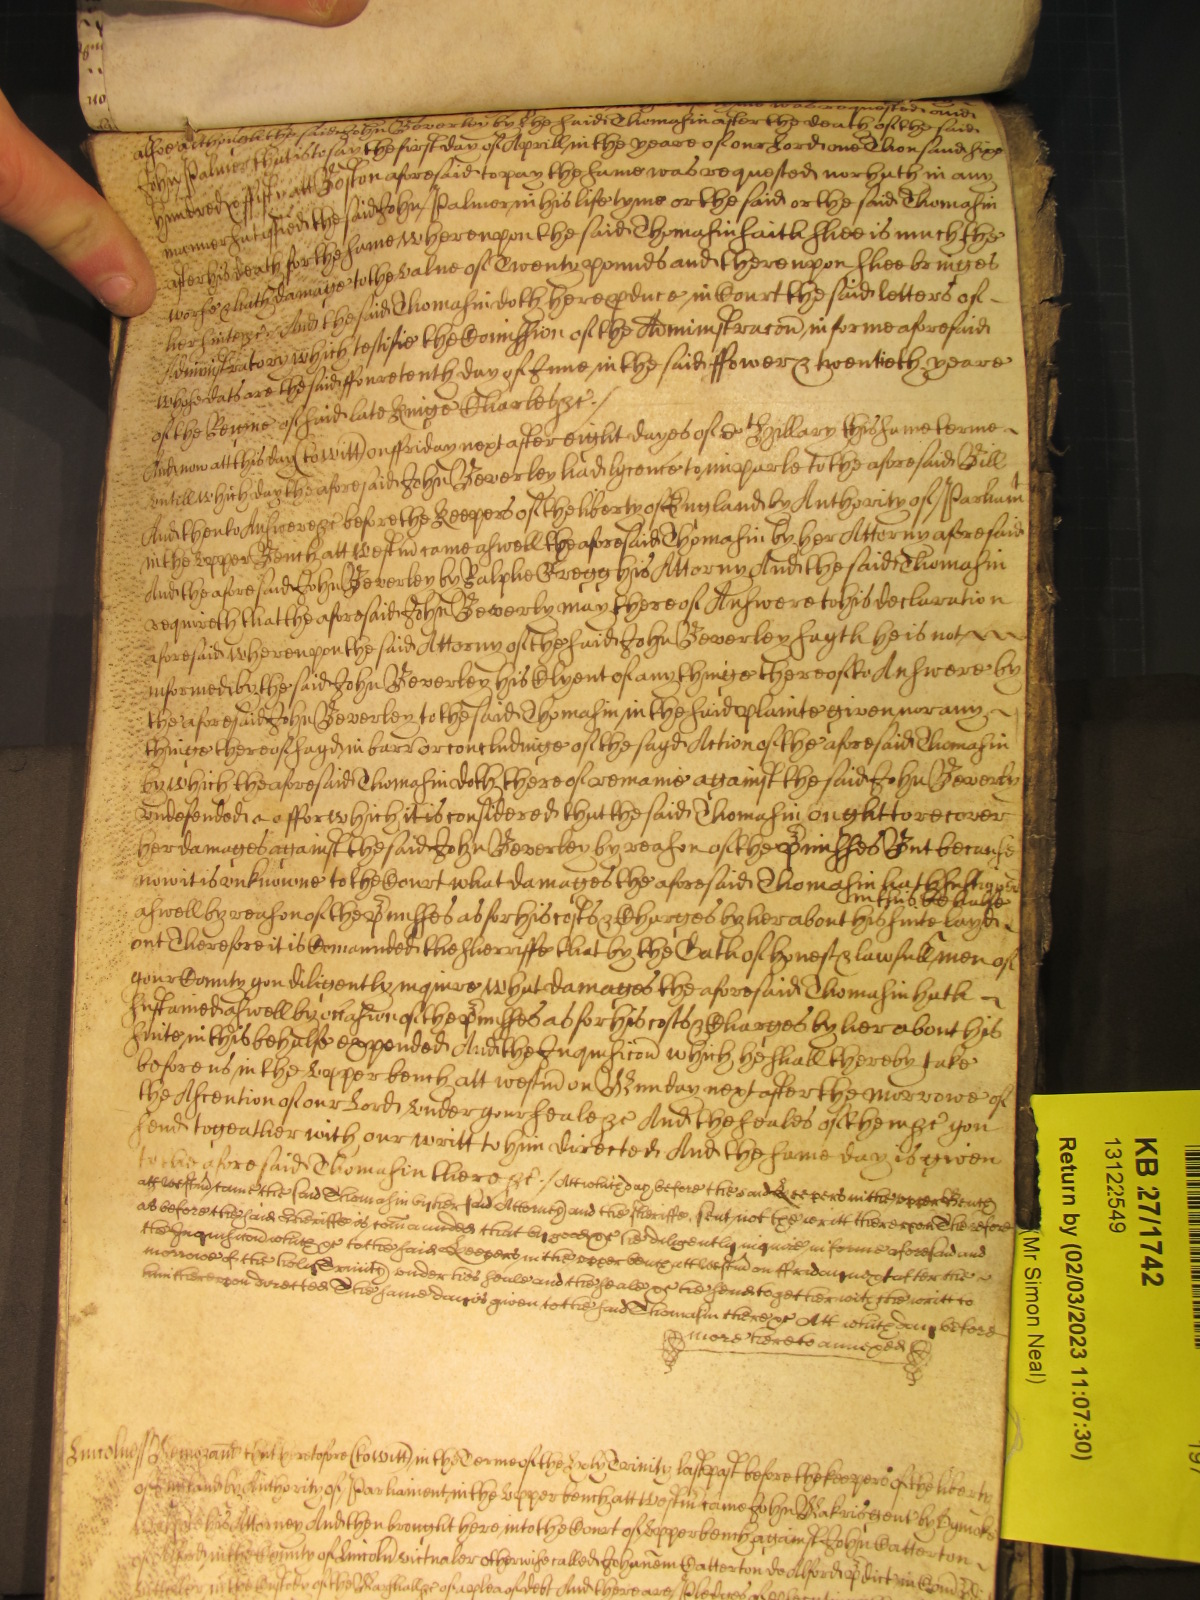 also although the said John Beverley by the said Thomasin after the death of the said
John Palmer that is to say the first day of Aprill in the yeare of our Lord one Thousand sixe
hundred & fiftie att Boston aforesaid to pay the same was requested nor hath in any
manner satisfied the said John Palmer in his life tyme or the said or the said Thomasin
after his death for the same Whereuppon the said Thomasin saith shee is much the
worse & hath damage to the value of Twenty pounds and thereuppon shee bringes
her suite &c And the said Thomasin doth here pduce in Court the said letters of
Administratory which testifie the Comission of the Administracon in forme aforesaid
whose date are the said ffoureteenth day of June in the said ffower & twentieth yeare
of the Reigne of said late Kinge Charles &c /
And now att this day (to witt) on ffriday next after eight dayes of St Hillary this same terme
untill which day the aforesaid John Beverley had lycence to imparle to the aforesaid Bill
And then to Answere &c before the Keepers of the liberty of England by Authority of Parliamt
in the Upper Bench att Westm came aswell the aforesaid Thomasin by her Attorny aforesaid
And the aforesaid John Beverley by Ralphe Gregg his Attorny And the said Thomasin
requireth that the aforesaid John Beverly may thereof Answere to his declaration
aforesaid whereuppon the said Attorny of the said John Beverley sayth he is not
informed by the said John Beverley his Clyent of any thinge thereof to Answere by
the aforesaid John Beverley to the said Thomasin in the said plainte given nor any
thinge thereof sayd in barr or concludinge of the sayd Action of the aforesaid Thomasin
by which the aforesaid Thomasin doth thereof remaine against the said John Beverly
undefended a ffor which it is considered that the said Thomasin ought to recover
her damages against the said John Beverley by reason of the pmisses But because
now it is unknowne to the Court what damages the aforesaid Thomasin hath susteyned
in this behalfe
aswell by reason of the pmisses as for his costs & Charges by her about his suite layd
out Therefore it is Comaunded the sherriffe that by the Oath of honest & lawfull men of
your County you diligently inquire what damages the aforesaid Thomasin hath
sustained aswell by occasion of the pmisses as for his costs & Charges by her about his
suite in this behalfe expended And the Inquisicon which he shall thereby take
before us in the Upper bench att westm on Munday next after the morrowe of
the Ascention of our Lord under your seale &c And the seales of them &c you
send togeather with our writt to him directed And the same day is given
to the aforesaid Thomasin there &c / Att which day before the said Keepers in the upper Bench
att Westm came the said Thomasin by her said Attorny and the sheriffe sent not the writt thereupon Therefore
as before the said Sheriffe is commaunded that by good &c he diligently inquire in forme aforesaid and
the Inquisicon which &c to the said Keepers in the upper bench att Westm on ffriday next after the
morrowe of the holy Trinity under his seale and the seales &c he send together with the writt to
him thereupon directed The same day is given to the said Thomasin there &c Att which day before
more here to annexed
Lincolne ss Memorand that heretofore (to witt) in the Terme of the Holy Trinity last past before the keepers of the liberty
of England by Authority of Parliament in the Upper bench att Westm came John gent by
his Attorney And then brought here into the Court of Upper bench against John Catterton
in the County of Lincoln victualer otherwise called Johanem Catterton de Alford pdict in Com
in the Custody of the Marshall &c of a plea of debt And there are Pledges of
KB 27/1742
13122549
Return by (02/03/2023 11:07:30)
(Mr Simon Neal)